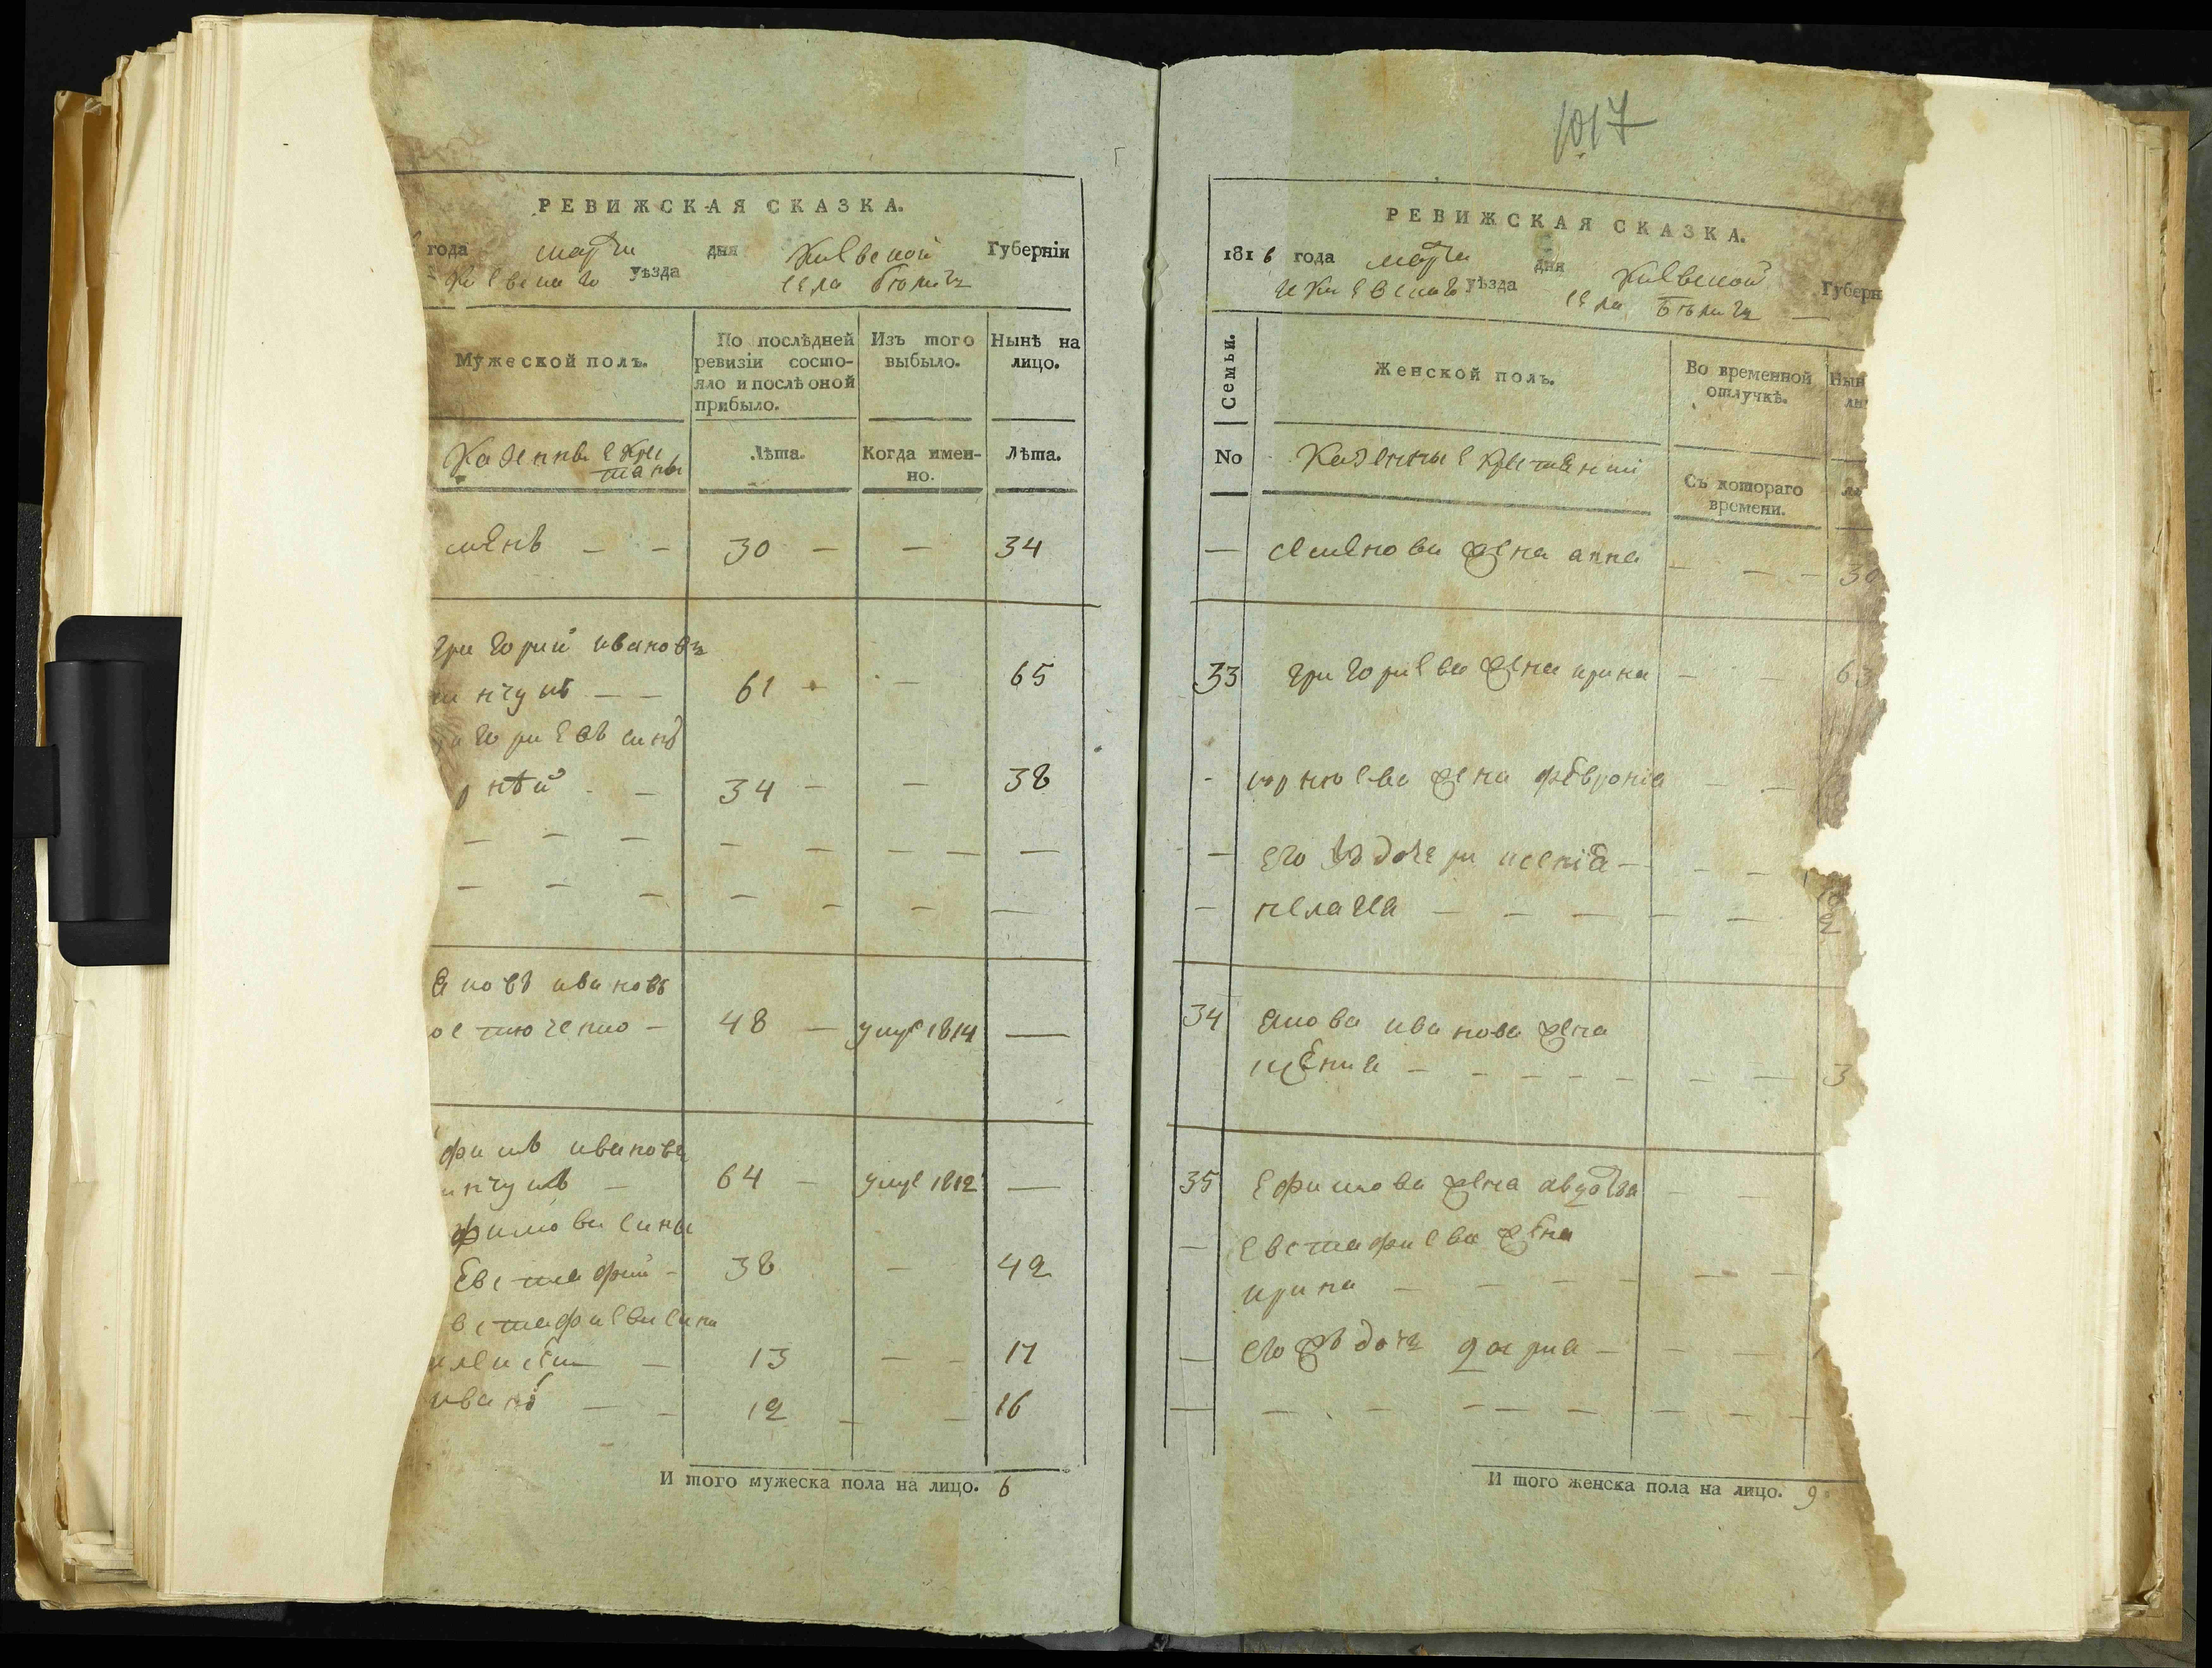 РЕВИЖСКАЯ СКАЗКА.
года марта дня Киевской Губерніи
Киевскаго уѣзда села Бѣличъ
Мужеской полъ.
По послѣдней ревизіи состо-
яло и послѣ оной
прибыло.
Изъ того
выбыло.
Нынѣ на
лицо.
Казенные кре
стяны
Лѣта.
Когда имен-
но.
Лѣта.
менъ — — 30 — — 34
григорий ивановъ
нчукъ — — 61 — 65
горіевъ синъ
рнѣй — 34 — — 38
яковъ ивановъ
остюченко — 48 — умре 1814 —
фимъ ивановъ
нчукъ — 64 — умре 1812 —
фимови сины
Евстафий — 38 — 42
встафиеви сини
алексѣй — 13 — — 17
иванъ — — 12 — — 16
И того мужеска пола на лицо. 6
1017
РЕВИЖСКАЯ СКАЗКА.
1816 года марта дня Киевской Губерн
и Киевскаго уѣзда села Бѣличъ —
Семьи.
Женской полъ.
Во временной
отлучкѣ.
Нын
ли
No
Казенные крестяни
Съ котораго
времени.
лѣ
— семенова жена анна — — — 30
33 григориева жена ирина — — 63
- корнѣева жена февронія — —
— его жъ дочери ксенія — — —
— пелагея — — — — —
34 якова иванова жена
— — — — — — — 3
35 ефимова жена авдотя — —
— евстафиева жена
ирина — — — — — —
— его жъ дочъ дария — — —
И того женска пола на лицо. 9